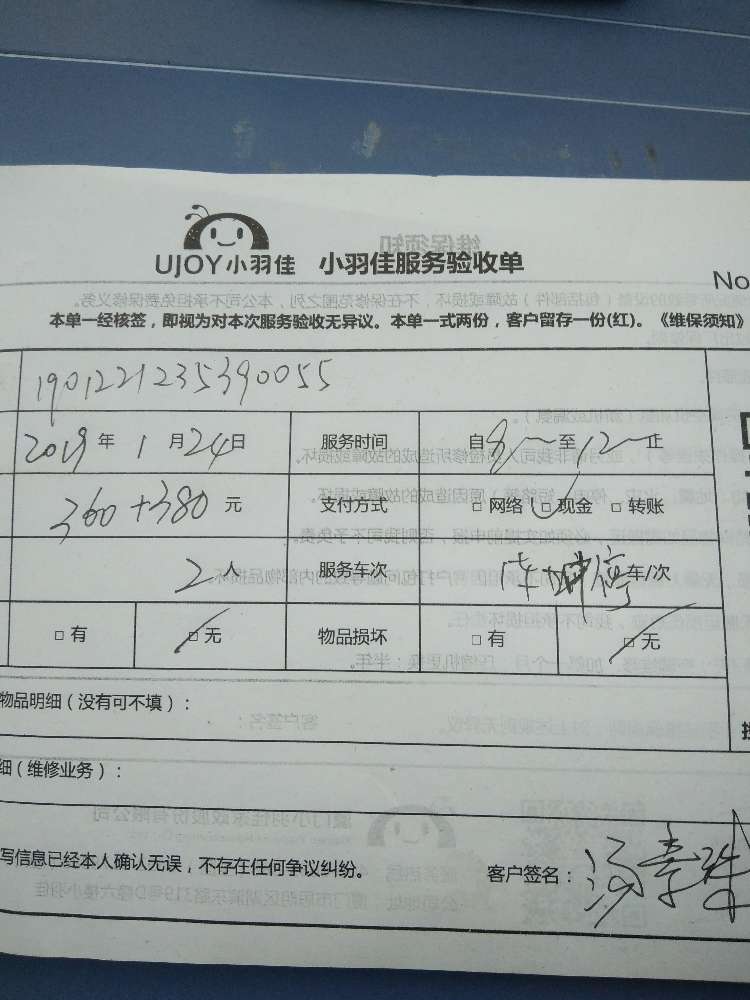 UJOY小羽佳 小羽佳服务验收单
No
本单一经核签，即视为对本次服务验收无异议。本单一式两份，客户留存一份(红)。《维保须知》
1901221235390055
2019年1月24日 服务时间 自8～至12～止
360+380元 支付方式 □网络 □现金 □转账
2人 服务车次 车/次
□有 □无 物品损坏 □有 □无
物品明细（没有可不填）：
细（维修业务）：
写信息已经本人确认无误，不存在任何争议纠纷。 客户签名：